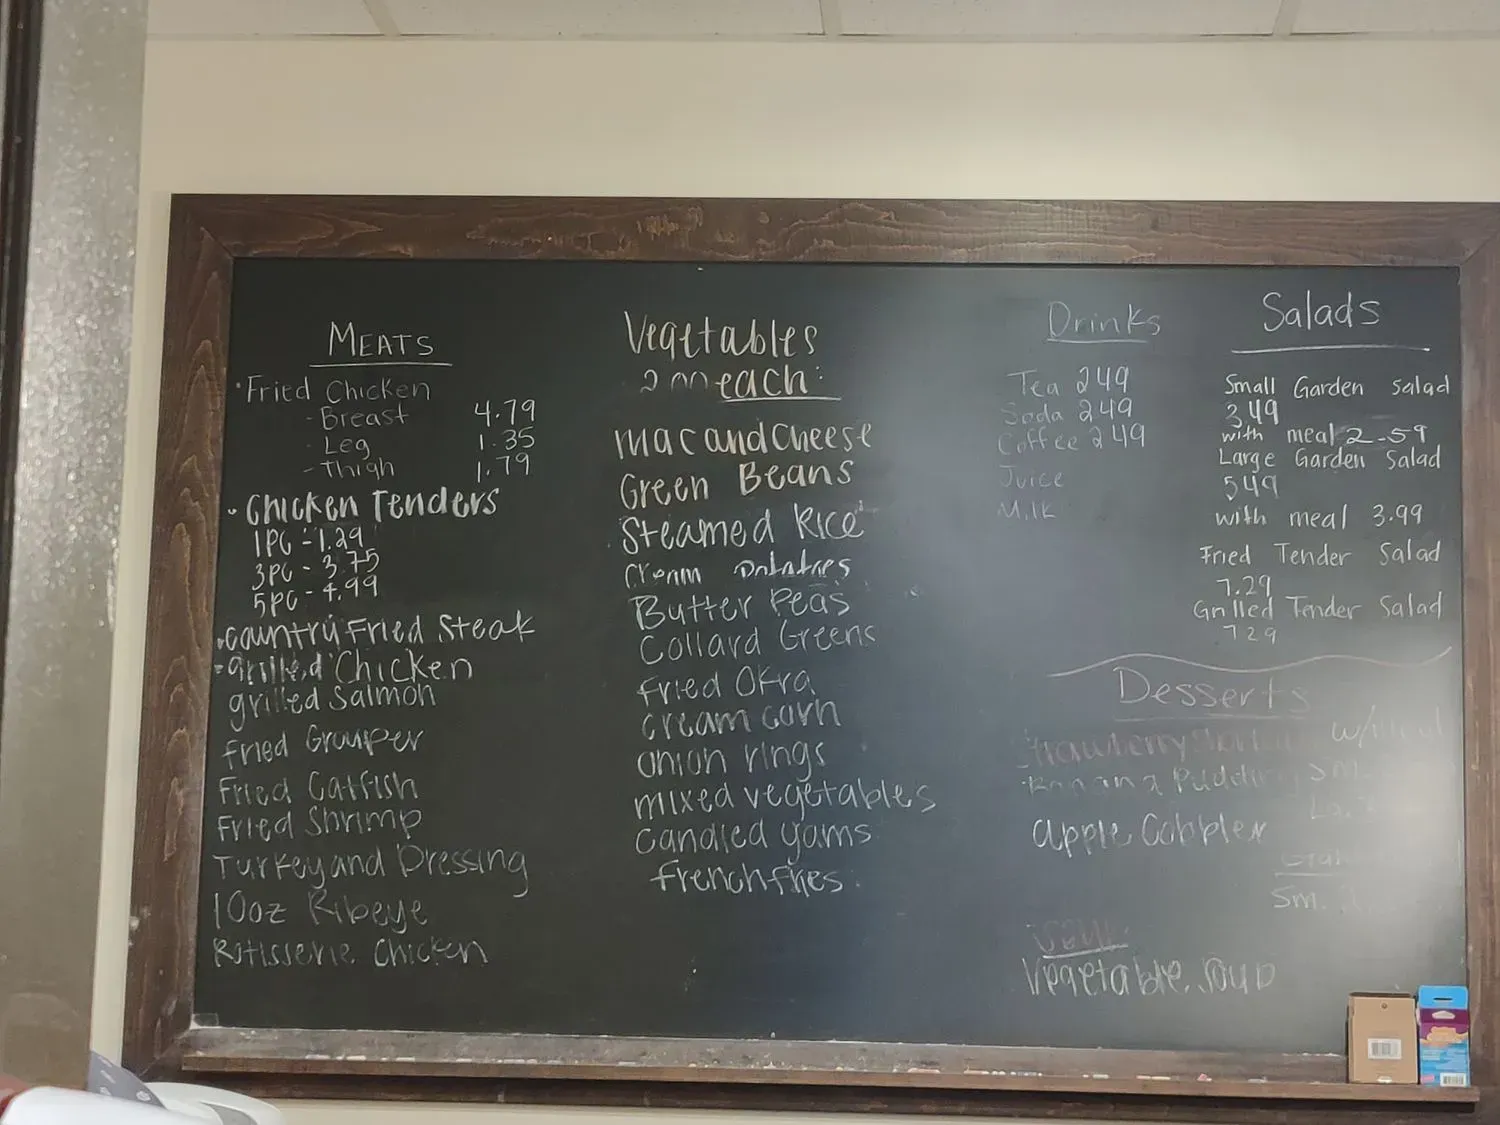 MEATS
• Fried Chicken
- Breast 4.79
- Leg 1.35
- Thigh 1.79
• Chicken Tenders
1PC - 1.29
3PC - 3.75
5PC - 4.99
• Country Fried Steak
• grilled Chicken
grilled Salmon
fried Grouper
Fried Catfish
Fried Shrimp
Turkey and Dressing
10oz Ribeye
Rotisserie Chicken
Vegetables
2.00 each:
mac and Cheese
Green Beans
Steamed Rice
Cream Potatoes
Butter Peas
Collard Greens
Fried Okra
cream corn
onion rings
mixed vegetables
candied yams
french fries
Drinks
Tea 249
Soda 249
Coffee 249
Juice
Milk
Salads
Small Garden Salad
349
with meal 2.59
Large Garden Salad
549
with meal 3.99
Fried Tender Salad
7.29
Grilled Tender Salad
729
Desserts
Strawberry w/
Banana Pudding Sm.
apple Cobbler
Sm.
Vegetable Soup